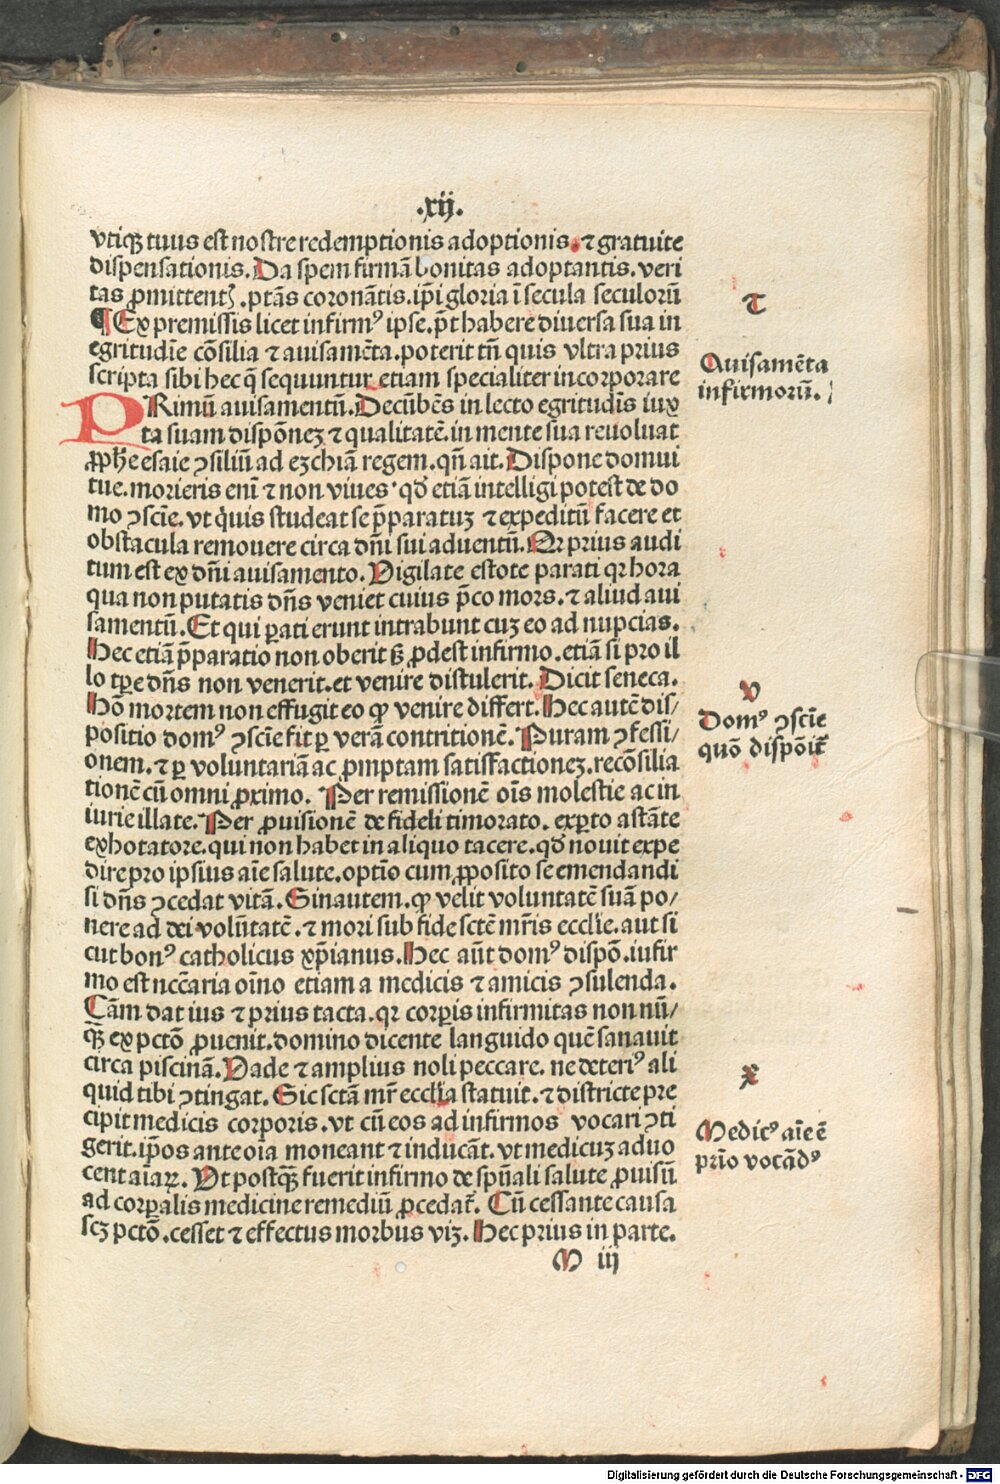 .xij.
vtiqꝫ tuus est nostre redemptionis adoptionis. ⁊ gratuite
dispensationis. Da spem firmā bonitas adoptantis. veri
tas ꝓmittentꝭ. ptās coronātis. ip̄i gloria ī secula seculorū
¶ Ex premissis licet infirmꝰ ipse. p̄t habere diuersa sua in
egritudīe cōsilia ⁊ auisamēta. poterit tn̄ quis vltra prius
scripta sibi hec q̄ sequuntur etiam specialiter incorporare
PRimū auisamentū. Decūbēs in lecto egritudīs iux
ta suam dispōneꝫ ⁊ qualitatē. in mente sua reuoluat
ꝓph̄e esaie ꝯsiliū ad eꝫchiā regem. qn̄ ait. Dispone domui
tue. morieris enī ⁊ non viues. qd̄ etiā intelligi potest de do
mo ꝯscīe. vt q̇uis studeat se p̄paratuꝫ ⁊ expeditū facere et
obstacula remouere circa dn̄i sui aduentū. Qꝛ prius audi
tum est ex dn̄i auisamento. Vigilate estote parati qꝛ hora
qua non putatis dn̄s veniet cuius p̄co mors. ⁊ aliud aui
samentū. Et qui ꝑati erunt intrabunt cuꝫ eo ad nupcias.
Hec etiā p̄paratio non oberit sꝫ ꝓdest infirmo. etiā si pro il
lo tꝑe dn̄s non venerit. et venire distulerit. Dicit seneca.
Hō mortem non effugit eo ꝙ venire differt. Hec autē dis/
positio domꝰ ꝯscīe fit ꝑ verā contritionē. Puram ꝯfessi/
onem. ⁊ ꝑ voluntariā ac ꝓmptam satisfactioneꝫ. recōsilia
tionē cū omni ꝓximo. Per remissionē oīs molestie ac in
iurie illate. Per ꝓuisionē de fideli timorato. exꝑto astāte
exhotatore. qui non habet in aliquo tacere. qd̄ nouit expe
dire pro ipsius aīe salute. optīo cum ꝓposito se emendandi
si dn̄s ꝯcedat vitā. Sinautem. ꝙ velit voluntatē suā po/
nere ad dei volūtatē. ⁊ mori sub fide sctē mr̄is eccl̄ie. aut si
cut bonꝰ catholicus xp̄ianus. Hec aūt domꝰ dispō. infir
mo est nccāria oīno etiam a medicis ⁊ amicis ꝯsulenda.
Cām dat ius ⁊ prius tacta. qꝛ corꝑis infirmitas non nū/
qꝫ ex pctō ꝓuenit. domino dicente languido quē sanauit
circa piscinā. Vade ⁊ amplius noli peccare. ne deteriꝰ ali
quid tibi ꝯtingat. Sic sctā mr̄ eccl̄ia statuit. ⁊ districte pre
cipit medicis corporis. vt cū eos ad infirmos vocari ꝯti
gerit. ip̄os ante oīa moneant ⁊ inducāt. vt medicuꝫ aduo
cent aīaꝝ. Vt postqꝫ fuerit infirmo de spūali salute ꝓuisū
ad corꝑalis medicine remediū ꝓcedat̄. Cū cessante causa
scꝫ pctō. cesset ⁊ effectus morbus viꝫ. Hec prius in parte.
M iij
T
Auisamēta
infirmorū.
v
Domꝰ ꝯscīe
quō dispōit̄
x
Medicꝰ aīe ē
prīo vocādꝰ
Digitalisierung gefördert durch die Deutsche Forschungsgemeinschaft - DFG